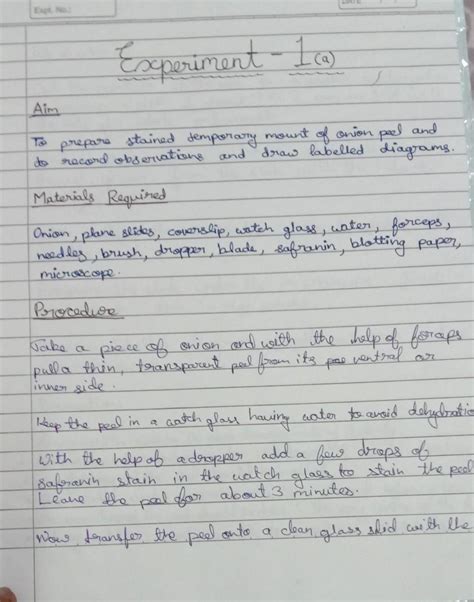 Expt. No.:
Date
Experiment - 1(a)
Aim
To prepare stained temporary mount of onion peel and
to record observations and draw labelled diagrams.
Materials Required
Onion, plane slides, coverslip, watch glass, water, forceps,
needles, brush, dropper, blade, safranin, blotting paper,
microscope.
Procedure
Take a piece of onion and with the help of forceps
pull a thin, transparent peel from its ventral or
inner side.
Keep the peel in a watch glass having water to avoid dehydratio
With the help of a dropper add a few drops of
safranin stain in the watch glass to stain the peel
Leave the peel for about 3 minutes.
Now, transfer the peel onto a clean glass slid with the